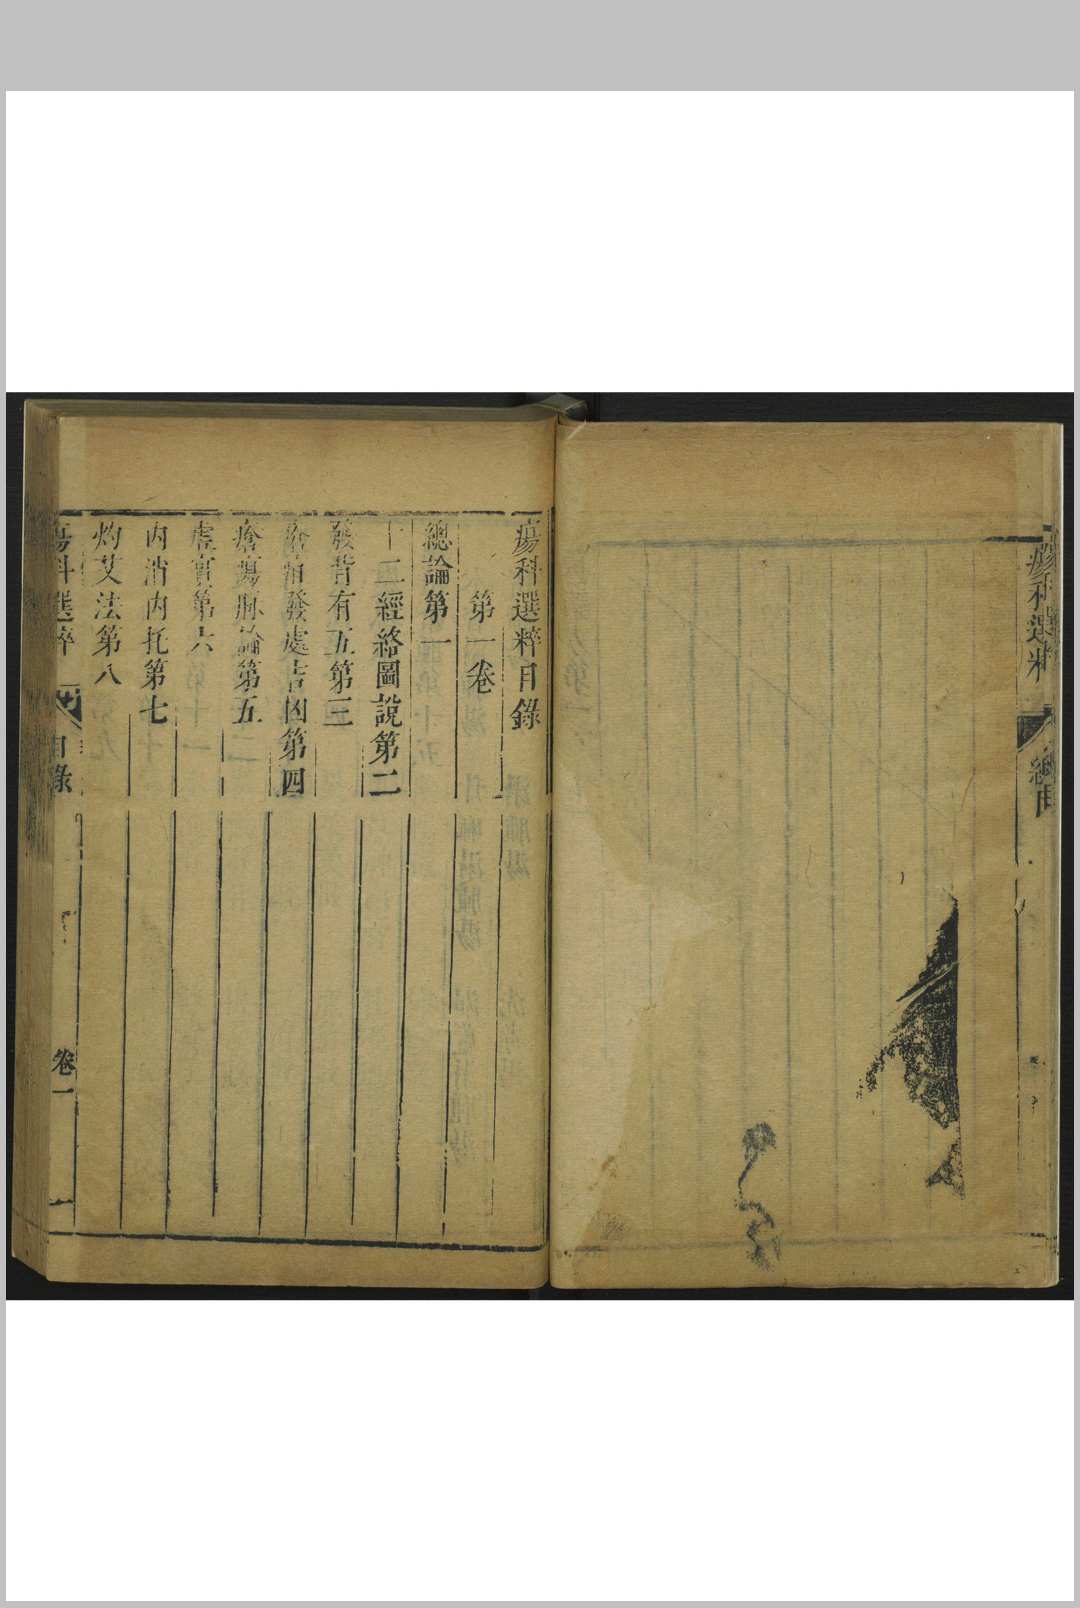 瘍科選粹
總目
瘍科選粹目錄
第一卷
總論第一
十二經絡圖說第二
發背有五第三
瘡疽發處吉凶第四
瘡瘍脉論第五
虛實第六
内消内托第七
灼艾法第八
瘍科選粹
目錄
卷一
一